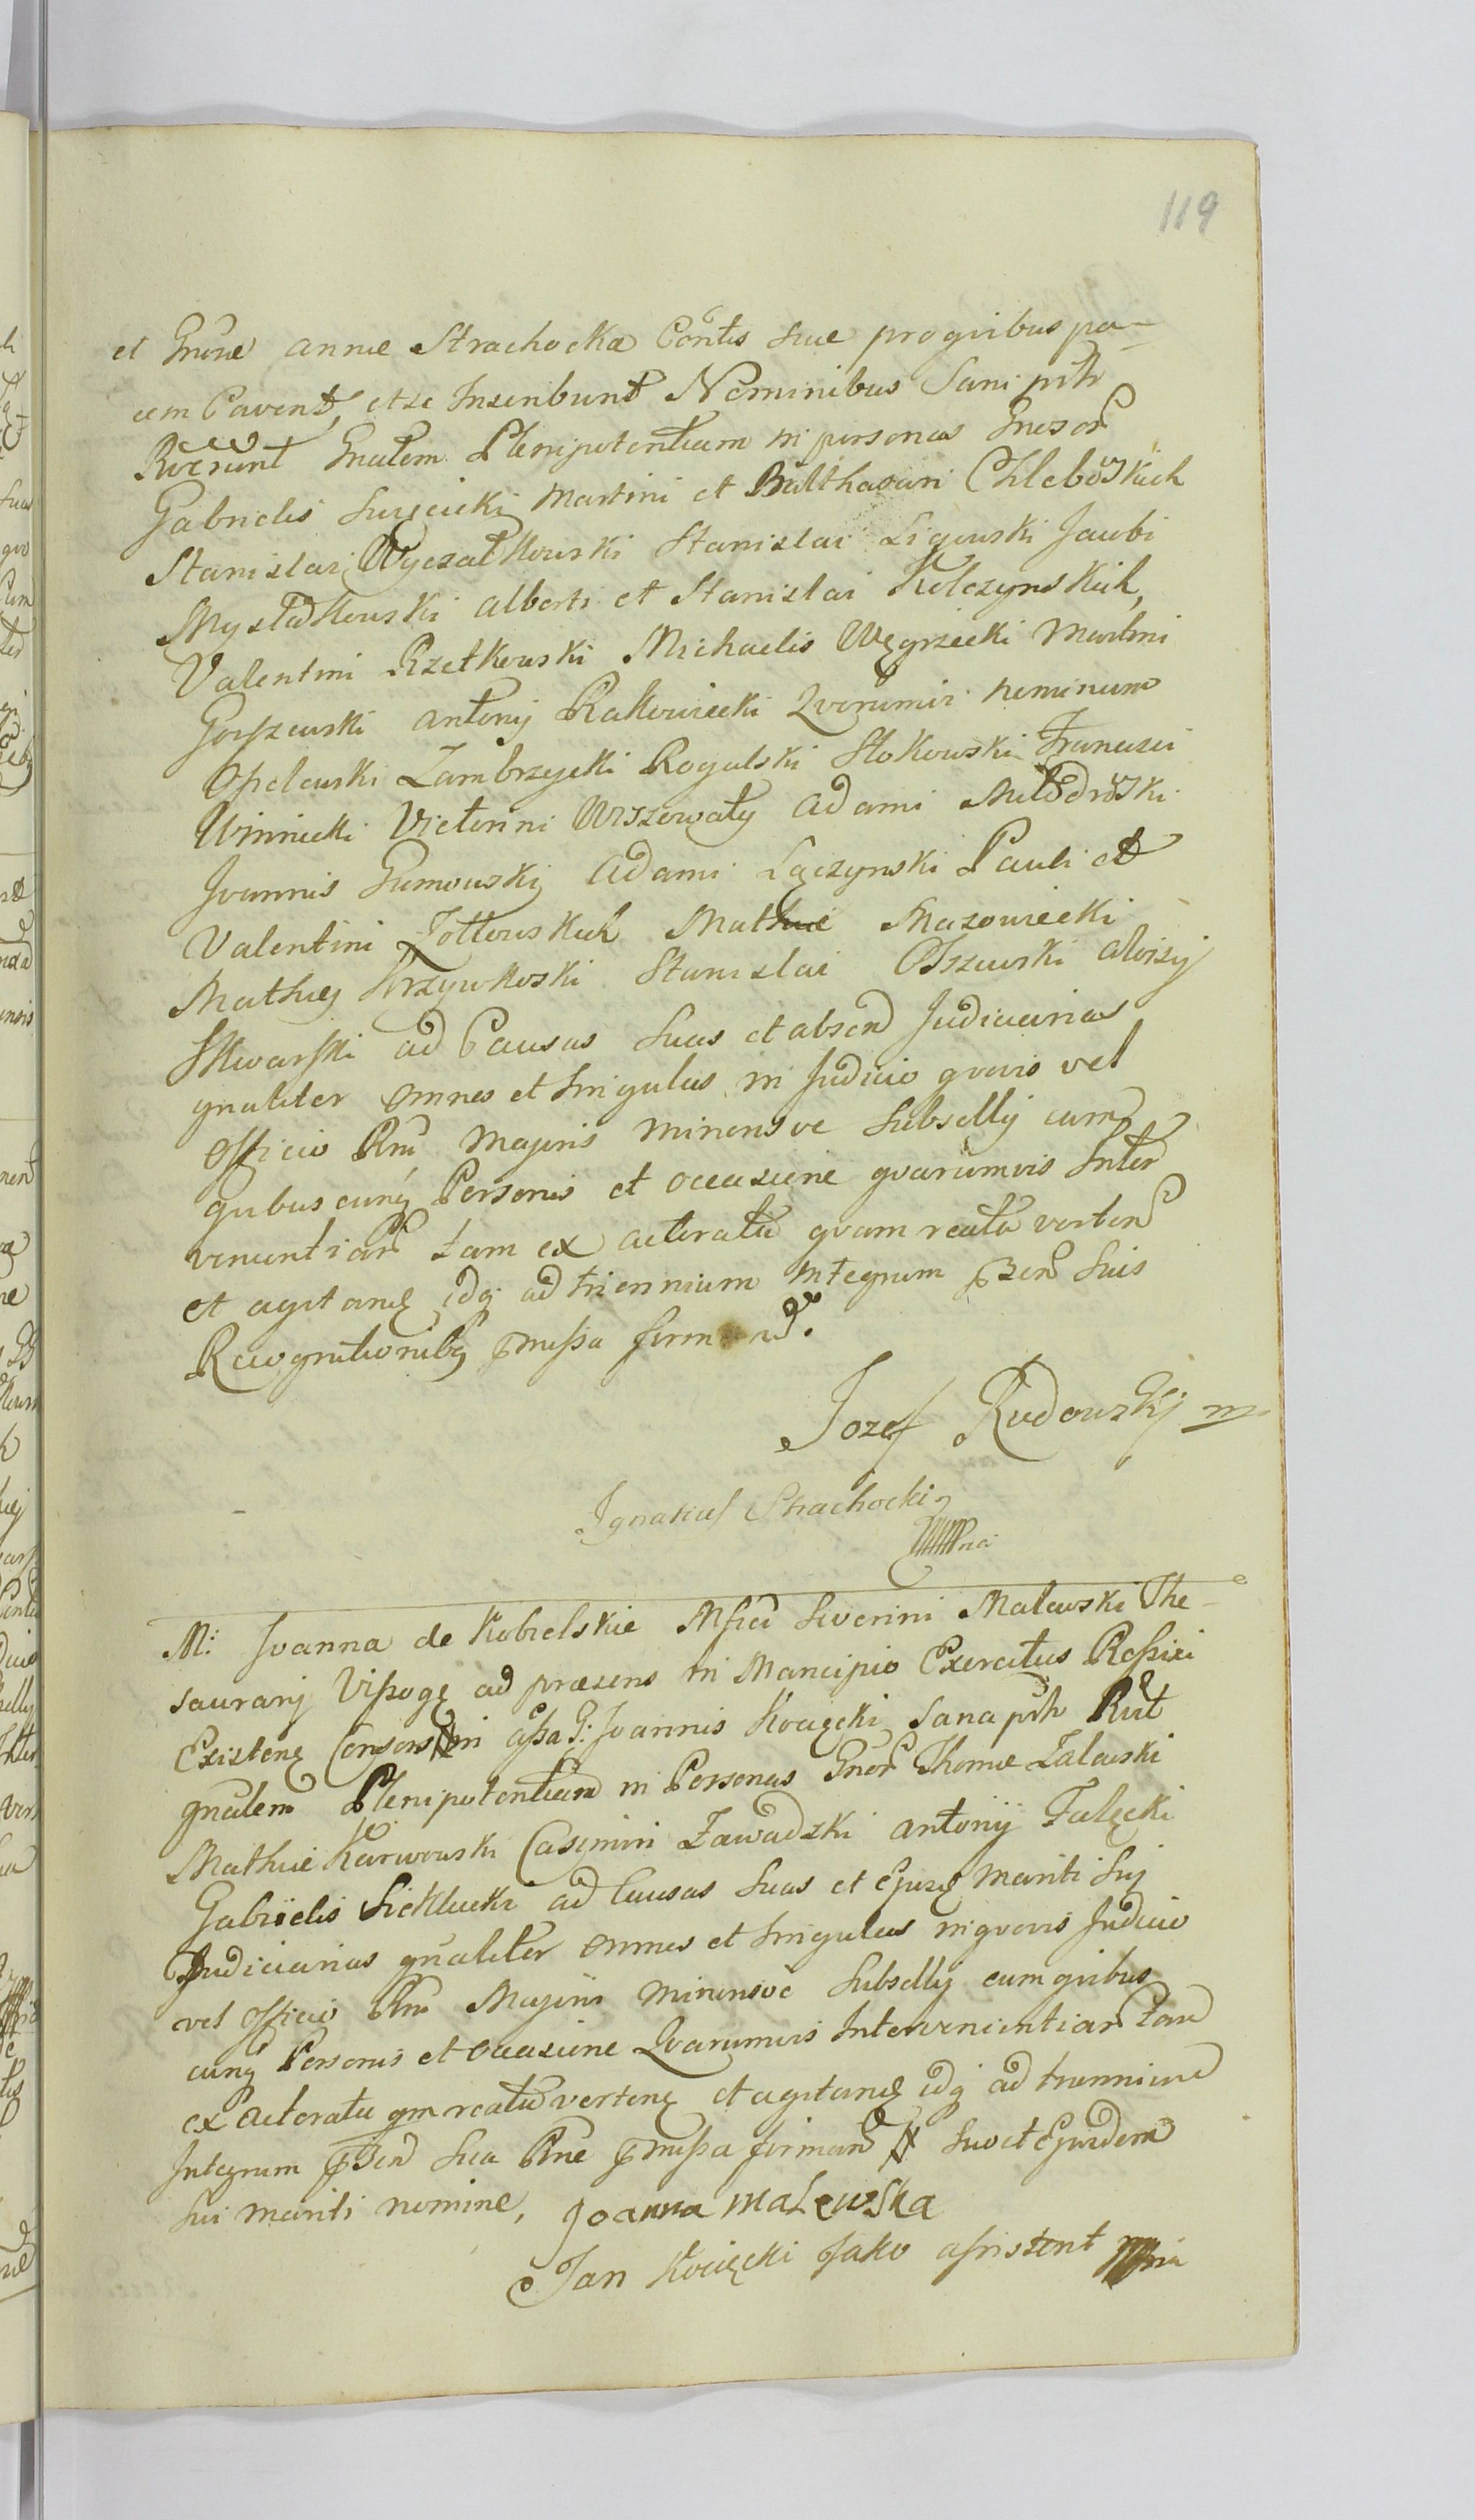 119
et Gnose annæ Strachocka Contis suæ pro quibus pa-
cem Cavent, et se Inscribunt Nominibus Sani prth
Rверunt Gnalem Plenipotentiam in personas Gnosor
Gabrielis Suięcicki Martini et Balthasari Chlebowskich
Stanislai Wyczałkowski Stanislai Ligowski Jacobi
Mysłakowski Alberti et Stanislai Kolczynskich,
Valentini Rzetkowski Michaelis Węgrzecki Martini
Gorszewski Antonij Rakowiecki Quorumvis nominum
Opelewski Zambrzycki Rogalski Stokowski Francisci
Winnicki Victorini Wszowąty Adami Młodrowski
Joannis Gumowski Adami Łączynski Pauli et
Valentini Zołtowskich Mathiæ Mazowiecki
Mathiæ Krzywkoski Stanislai Olszewski Aloisij
Skwarski ad Causas suas et absen Judiciarias
gnaliter omnes et singulas in Judicio quovis vel
officio Rni Majoris minorisve Subsellij cum
quibuscunq Personis et occasione quarumvis Inter
venientiar tam ex actoratu quam reatu verten
et agitanę idq ad triennium integrum pzen suis
Recognitionibq pmissa firmand.
Jozef Rudowskj m
Ignatius Strachocki
mpria
M: Joanna de Kobielskie Mfici Severini Malewski The-
saurarij Vissogę ad præsens in Mancipio Exercitus Rossici
Existenę Consors in assa G: Joannis Kocięcki Sana prth Rut
gnalem Plenipotentiam in Personas Gnor Thomæ Zalewski
Mathiæ Karwowski Casimiri Zawadzki Antonij Falęcki
Gabrielis Sieklucki ad Causas suas et Ejuzd Mariti sui
Judiciarias gnaliter omnes et singulas in quovis Judicio
vel officio Rni Majoris minorisve Subsellij cum quibus
cunq Personis et occasione Quarumvis Intervenientiar tam
ex actoratu qm reatu vertenę et agitanę idq ad triennium
Integrum pzen sua Rne pmissa firman suo et Ejusdem
sui mariti nomine, Joanna Malewska
Jan Kocięcki Jako assistent mpria